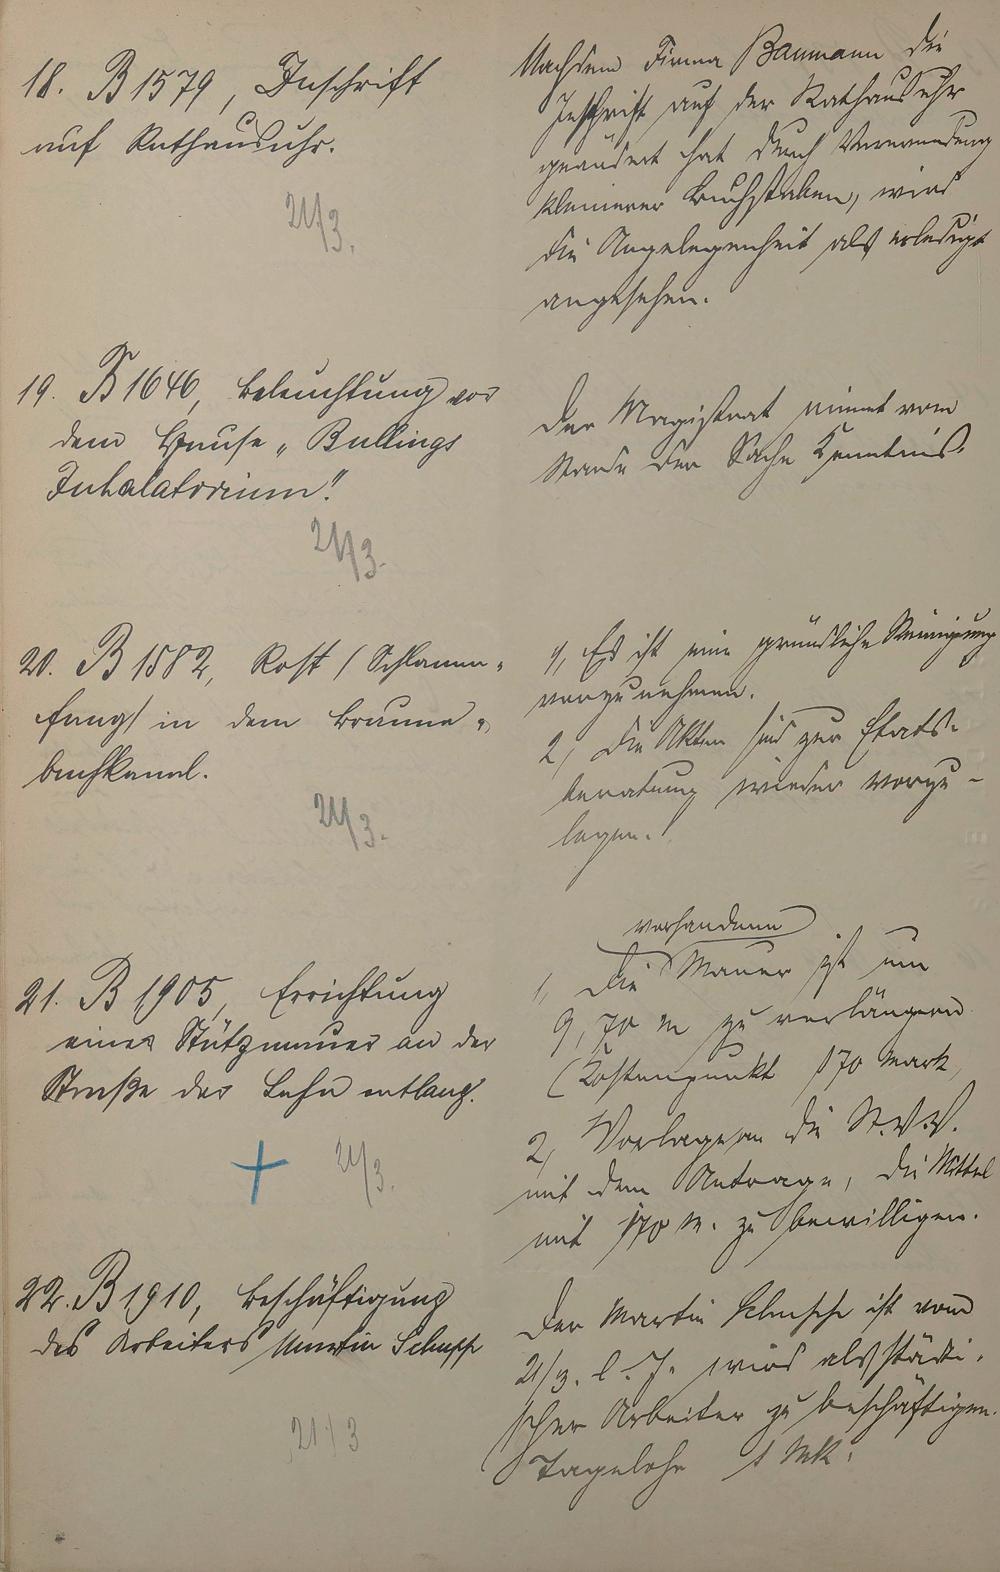 18. B 1579, Inschrift
auf Rathausuhr.
21/3.
Nachdem Firma Baumann die
Inschrift auf der Rathausuhr
geändert hat durch Verwendung
kleinerer Buchstaben, wird
die Angelegenheit als erledigt
angesehen.
19. B 1646, Beleuchtung vor
dem Hause „Bullings
Inhalatorium".
21/3.
Der Magistrat nimmt vom
Stande der Sache Kenntnis.
20. B 1582, Rost (Schlamm-
fang) in dem Braune-
bachkanal.
21/3.
1, Es ist eine gründliche Reinigung
vorzunehmen.
2, Die Akten sind zur Etats-
beratung wieder vorzu-
legen.
21. B 1905, Errichtung
einer Stützmauer an der
Straße der Lahn entlang.
21/3.
vorhandene
1, Die Mauer ist um
9,70 m zu verlängern
(Kostenpunkt 170 Mark,
2, Vorlage an die St.V.V.
mit dem Antrage, die Mittel
mit 170 M. zu bewilligen.
22. B 1910, Beschäftigung
des Arbeiters Martin Schupp
21/3
Der Martin ist vom
21/3. l. J. wird als städti-
scher Arbeiter zu beschäftigen.
Tagelohn Mk.